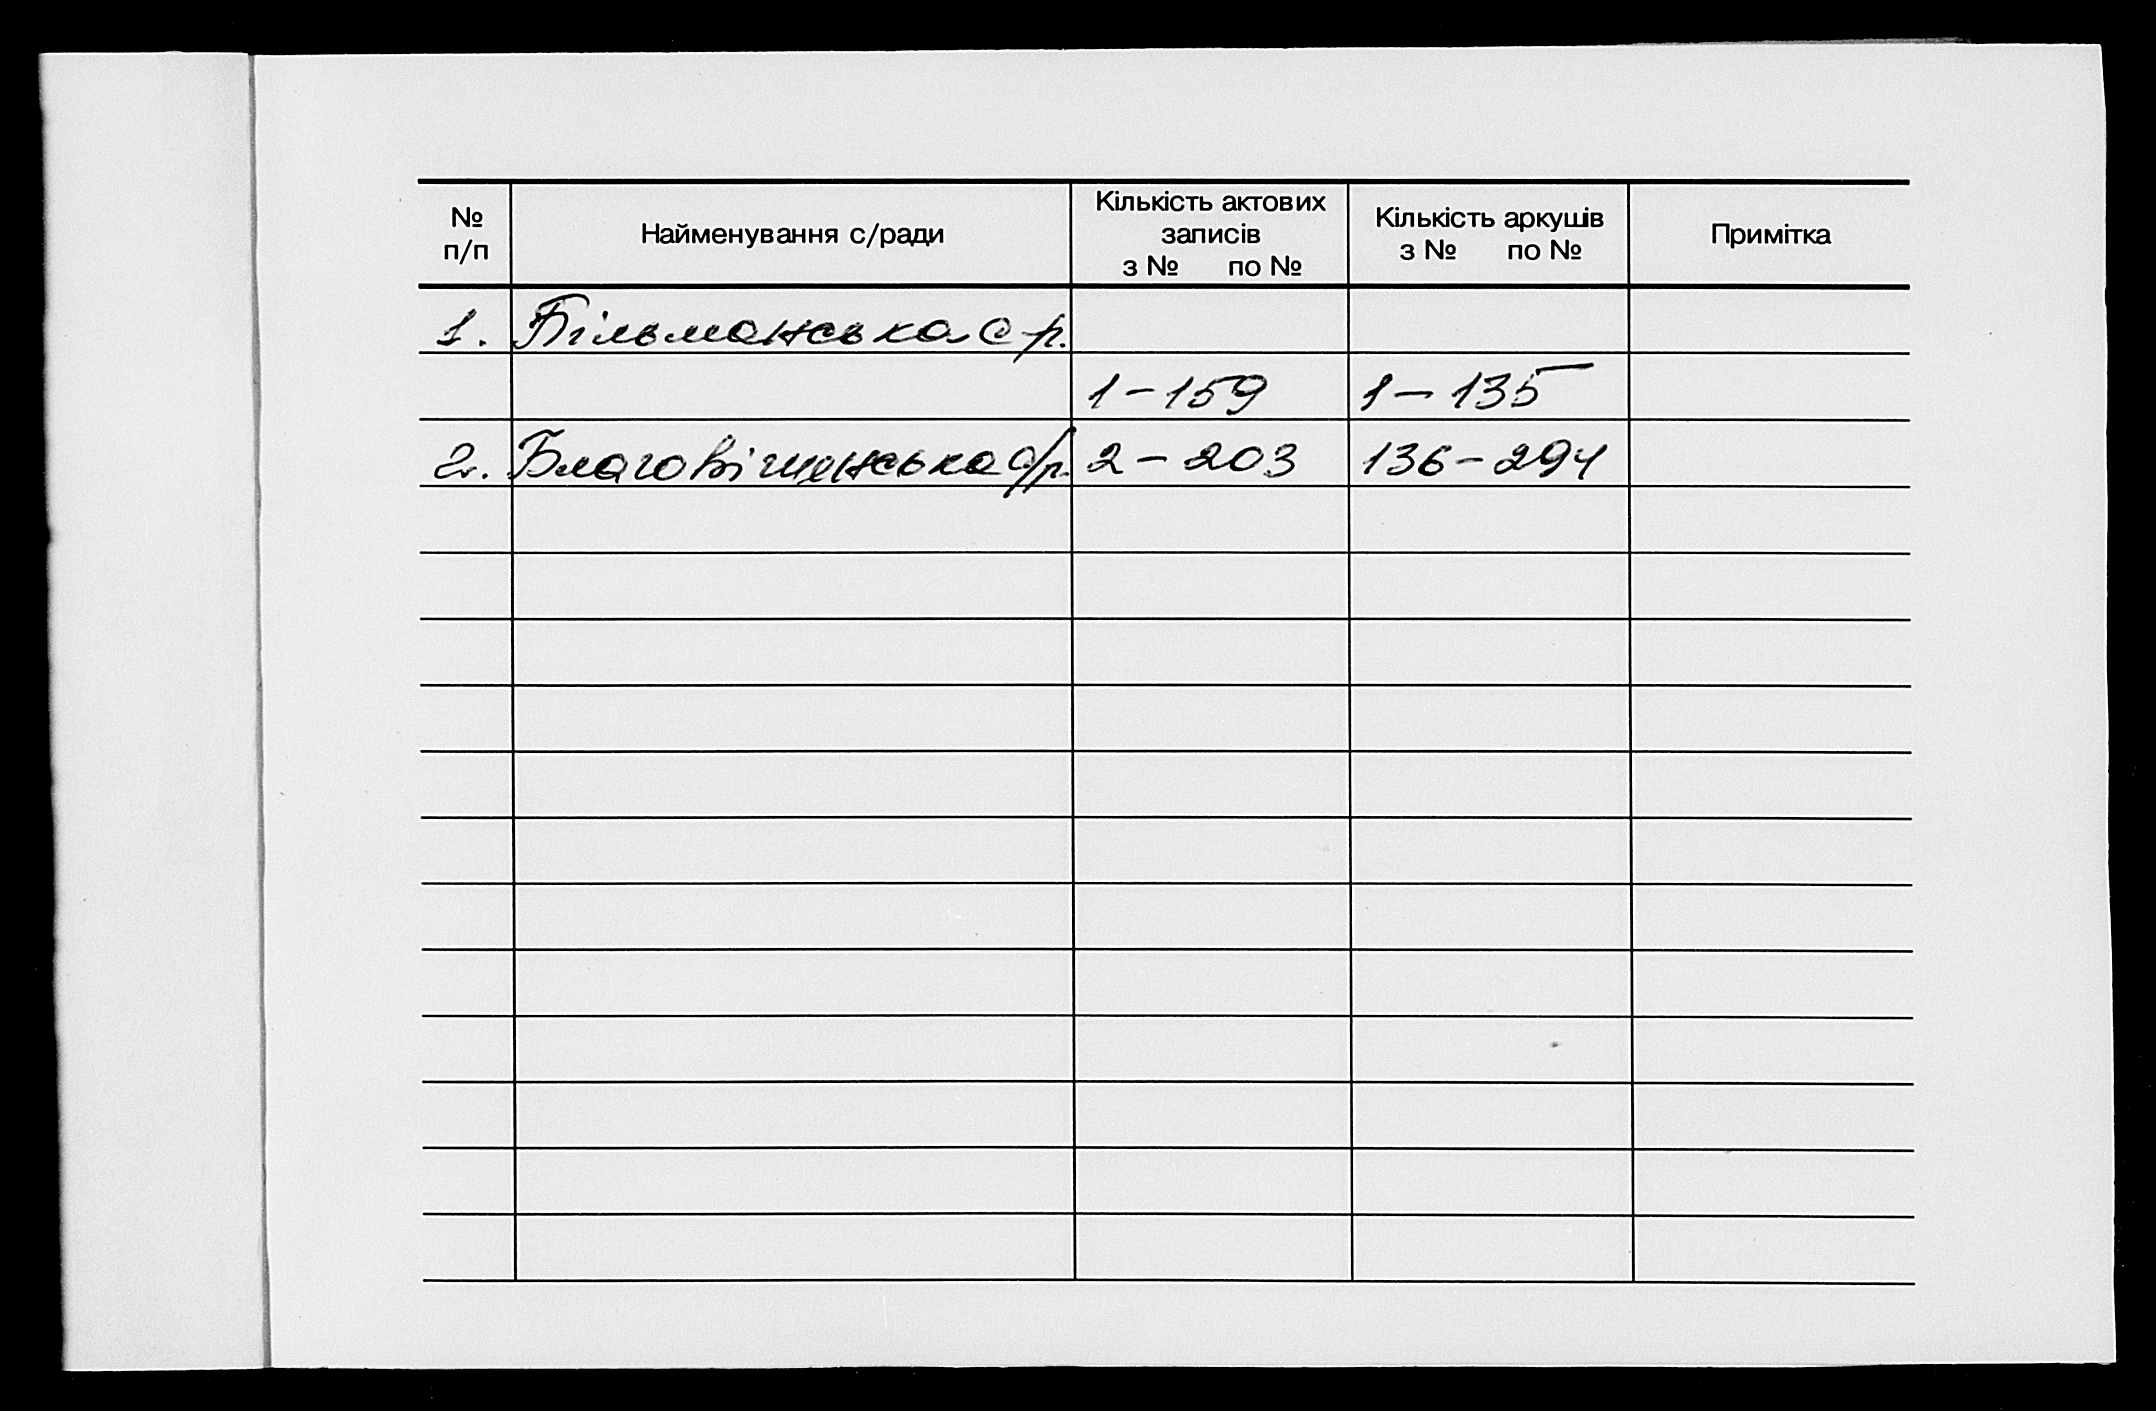 № п/п Найменування с/ради Кількість актових записів з № по № Кількість аркушів з № по № Примітка
1. Більманська с р.
1 - 159 1 - 135
2. Благовіщенська с/р. 2 - 203 136 - 294